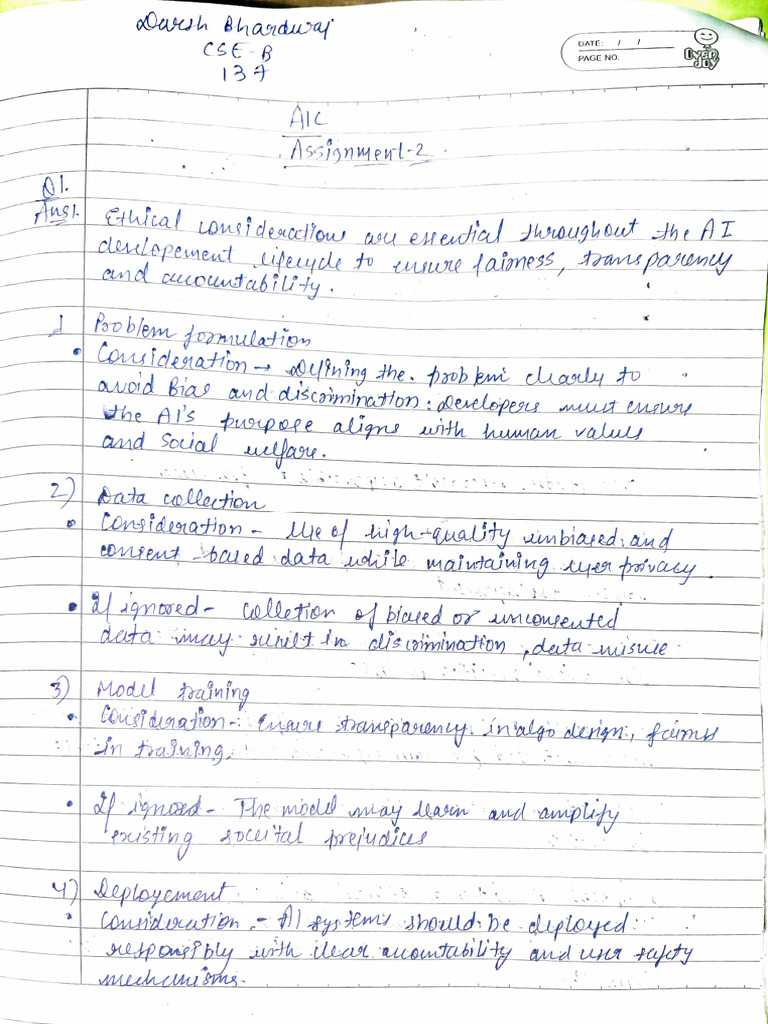 Darsh Bhardwaj
CSE-B
137
DATE: / /
PAGE NO.
OVER JOY
AIC
Assignment-2
Q1.
Ans1. Ethical consideration are essential throughout the AI
developement lifecycle to ensure fairness, transparency
and accountability.
1 Problem formulation
• Consideration → Defining the problem clearly to
avoid Bias and discrimination: Developers must ensure
the AI's purpose aligns with human values
and social welfare.
2) Data collection
• Consideration - Use of high-quality unbiased and
consent-based data while maintaining user privacy.
• If ignored - colletion of biased or unconsented
data may result in discrimination, data misuse
3) Model training
• Consideration - Ensure transparency in algo design, fairness
in training.
• If ignored - The model may learn and amplify
existing societal prejudices
4) Deployement
• Consideration - AI systems should be deployed
responsibly with clear accountability and user safety
mechanisms.